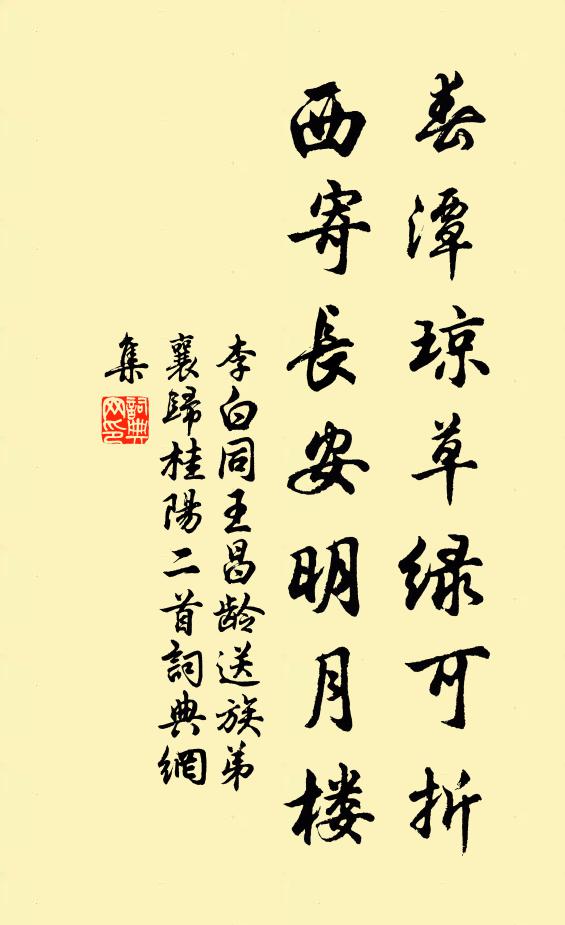 春潭琼草绿可折
西寄長安明月楼
李白同王昌龄送族弟
襄歸桂陽二首詞典網
集
詞典
网印